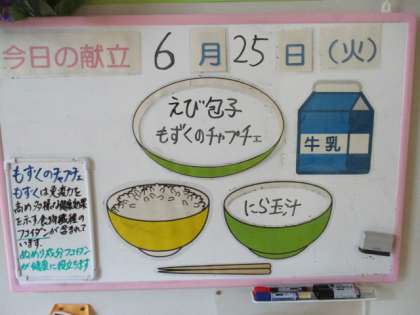 今日の献立 6月25日(火)
えび包子
もずくのチャプチェ
牛乳
にら玉汁
もずくのチャプチェ
もずくは免疫力を
高め、多様な健康効果
を示す食物繊維の
フコイダンが含まれて
います。
ぬめり成分フコイダン
が健康に役立ちます